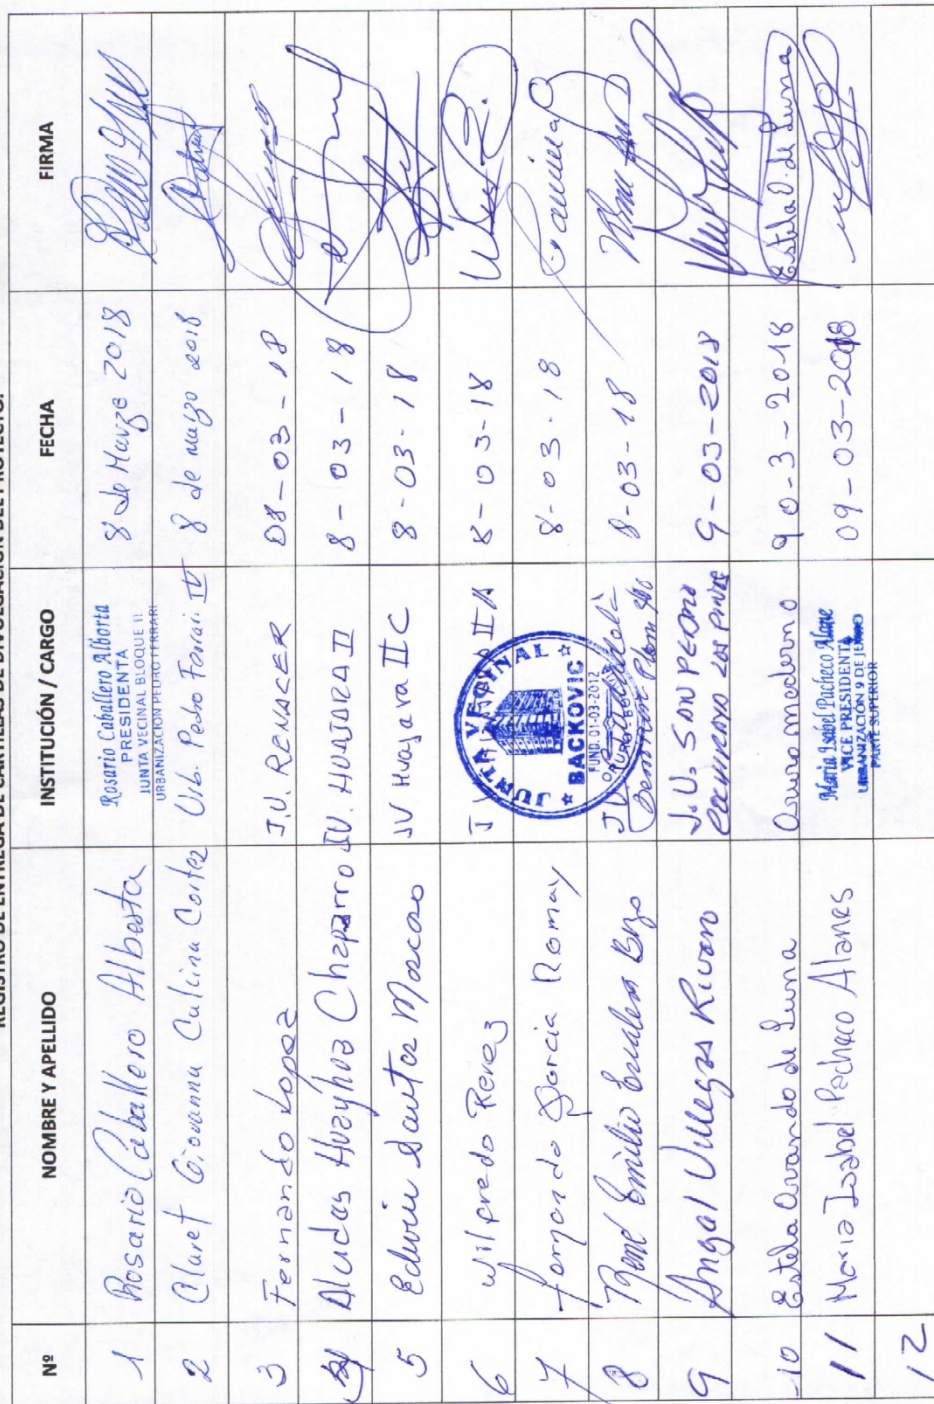 REGISTRO DE ENTREGA DE CARTILLAS DE DIVULGACIÓN DEL PROYECTO:
Nº NOMBRE Y APELLIDO INSTITUCIÓN / CARGO FECHA FIRMA
1 Rosario Caballero Alborta Rosario Caballero Alborta 8 de Marzo 2018
PRESIDENTA
JUNTA VECINAL BLOQUE II
URBANIZACION PEDRO FERRARI
2 Claret Giovanna Culina Cortez Urb. Pedro Ferrari IV 8 de marzo 2018
3 Fernando Lopez J.V. RENACER 08-03-18
Huayhua Chaparro JV. HUAJARA II 8-03-18
5 Edwin Mascaso JV Huajara II C 8-03-18
6 Wilfredo Perez 8-03-18
JUNTA VECINAL
BACKOVIC
FUND. 01-03-2012
7 Garcia Romay 8-03-18
8 René Emilio 8-03-18
9 Angel Villegas Rivero J.V. SAN PEDRO 9-03-2018
10 Estela Ovando de Luna Oruro moderno 90-3-2018 Estela O. de Luna
11 Maria Isabel Pacheco Alanes Maria Isabel Pacheco Alane 09-03-2018
VICE PRESIDENTA
URBANIZACIÓN 9 DE JUNIO
PARTE SUPERIOR
12